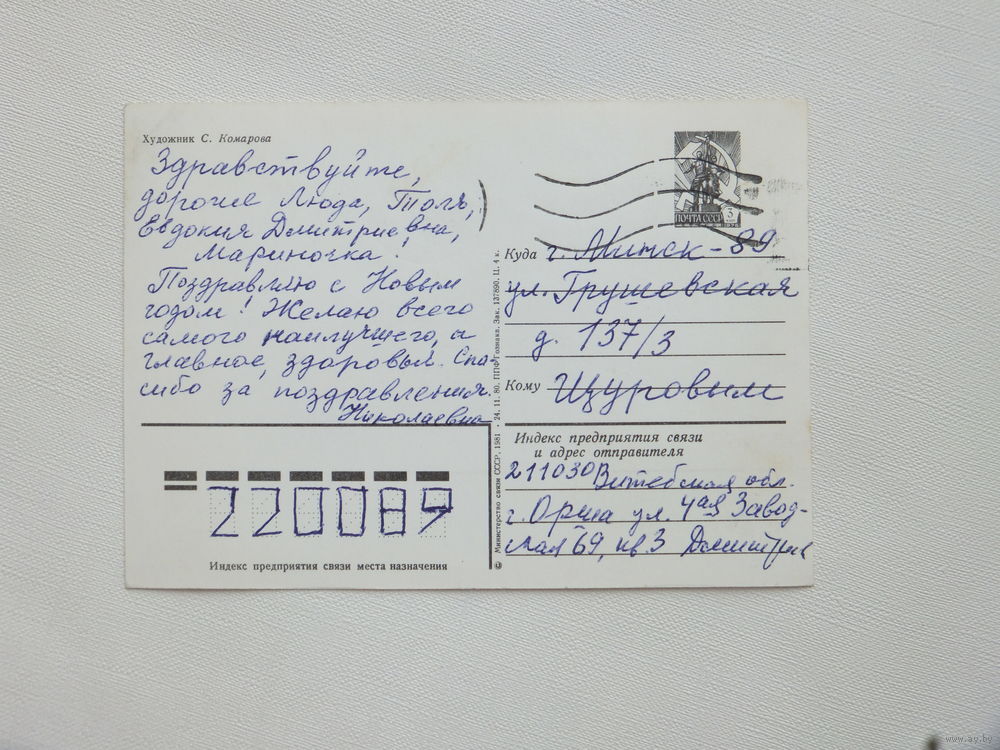 Художник С. Комарова
Здравствуйте,
дорогие Люда, Толя,
Евдокия Дмитриевна,
Мариночка!
Поздравляю с Новым
годом! Желаю всего
самого наилучшего, а
главное, здоровья. Спа-
сибо за поздравления.
Николаевна
ПОЧТА СССР
3
Куда г. Минск-89
ул. Грушевская
д. 137/3
Кому Щуровым
Индекс предприятия связи
и адрес отправителя
211030 Витебская обл.
г. Орша ул. 4ая Завод-
ная 69, кв. 3
220089
Индекс предприятия связи места назначения
© Министерство связи СССР, 1981 • 24. 11. 80. ППФ Гознака. Зак. 137890. Ц. 4 к.
www.ay.by